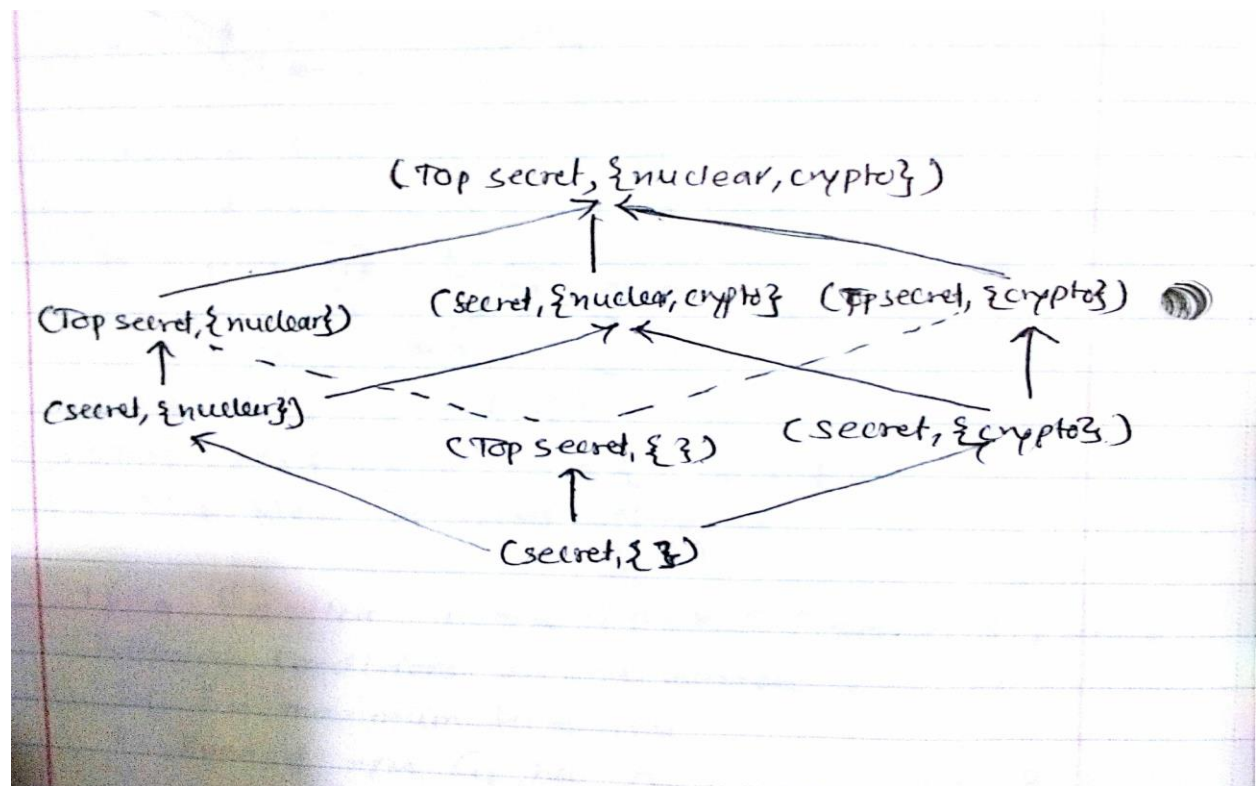 (Top secret, {nuclear, crypto})
(Top secret, {nuclear})
(secret, {nuclear, crypto}
(Top secret, {crypto})
(secret, {nuclear})
(Top secret, { })
(secret, {crypto})
(secret, { })